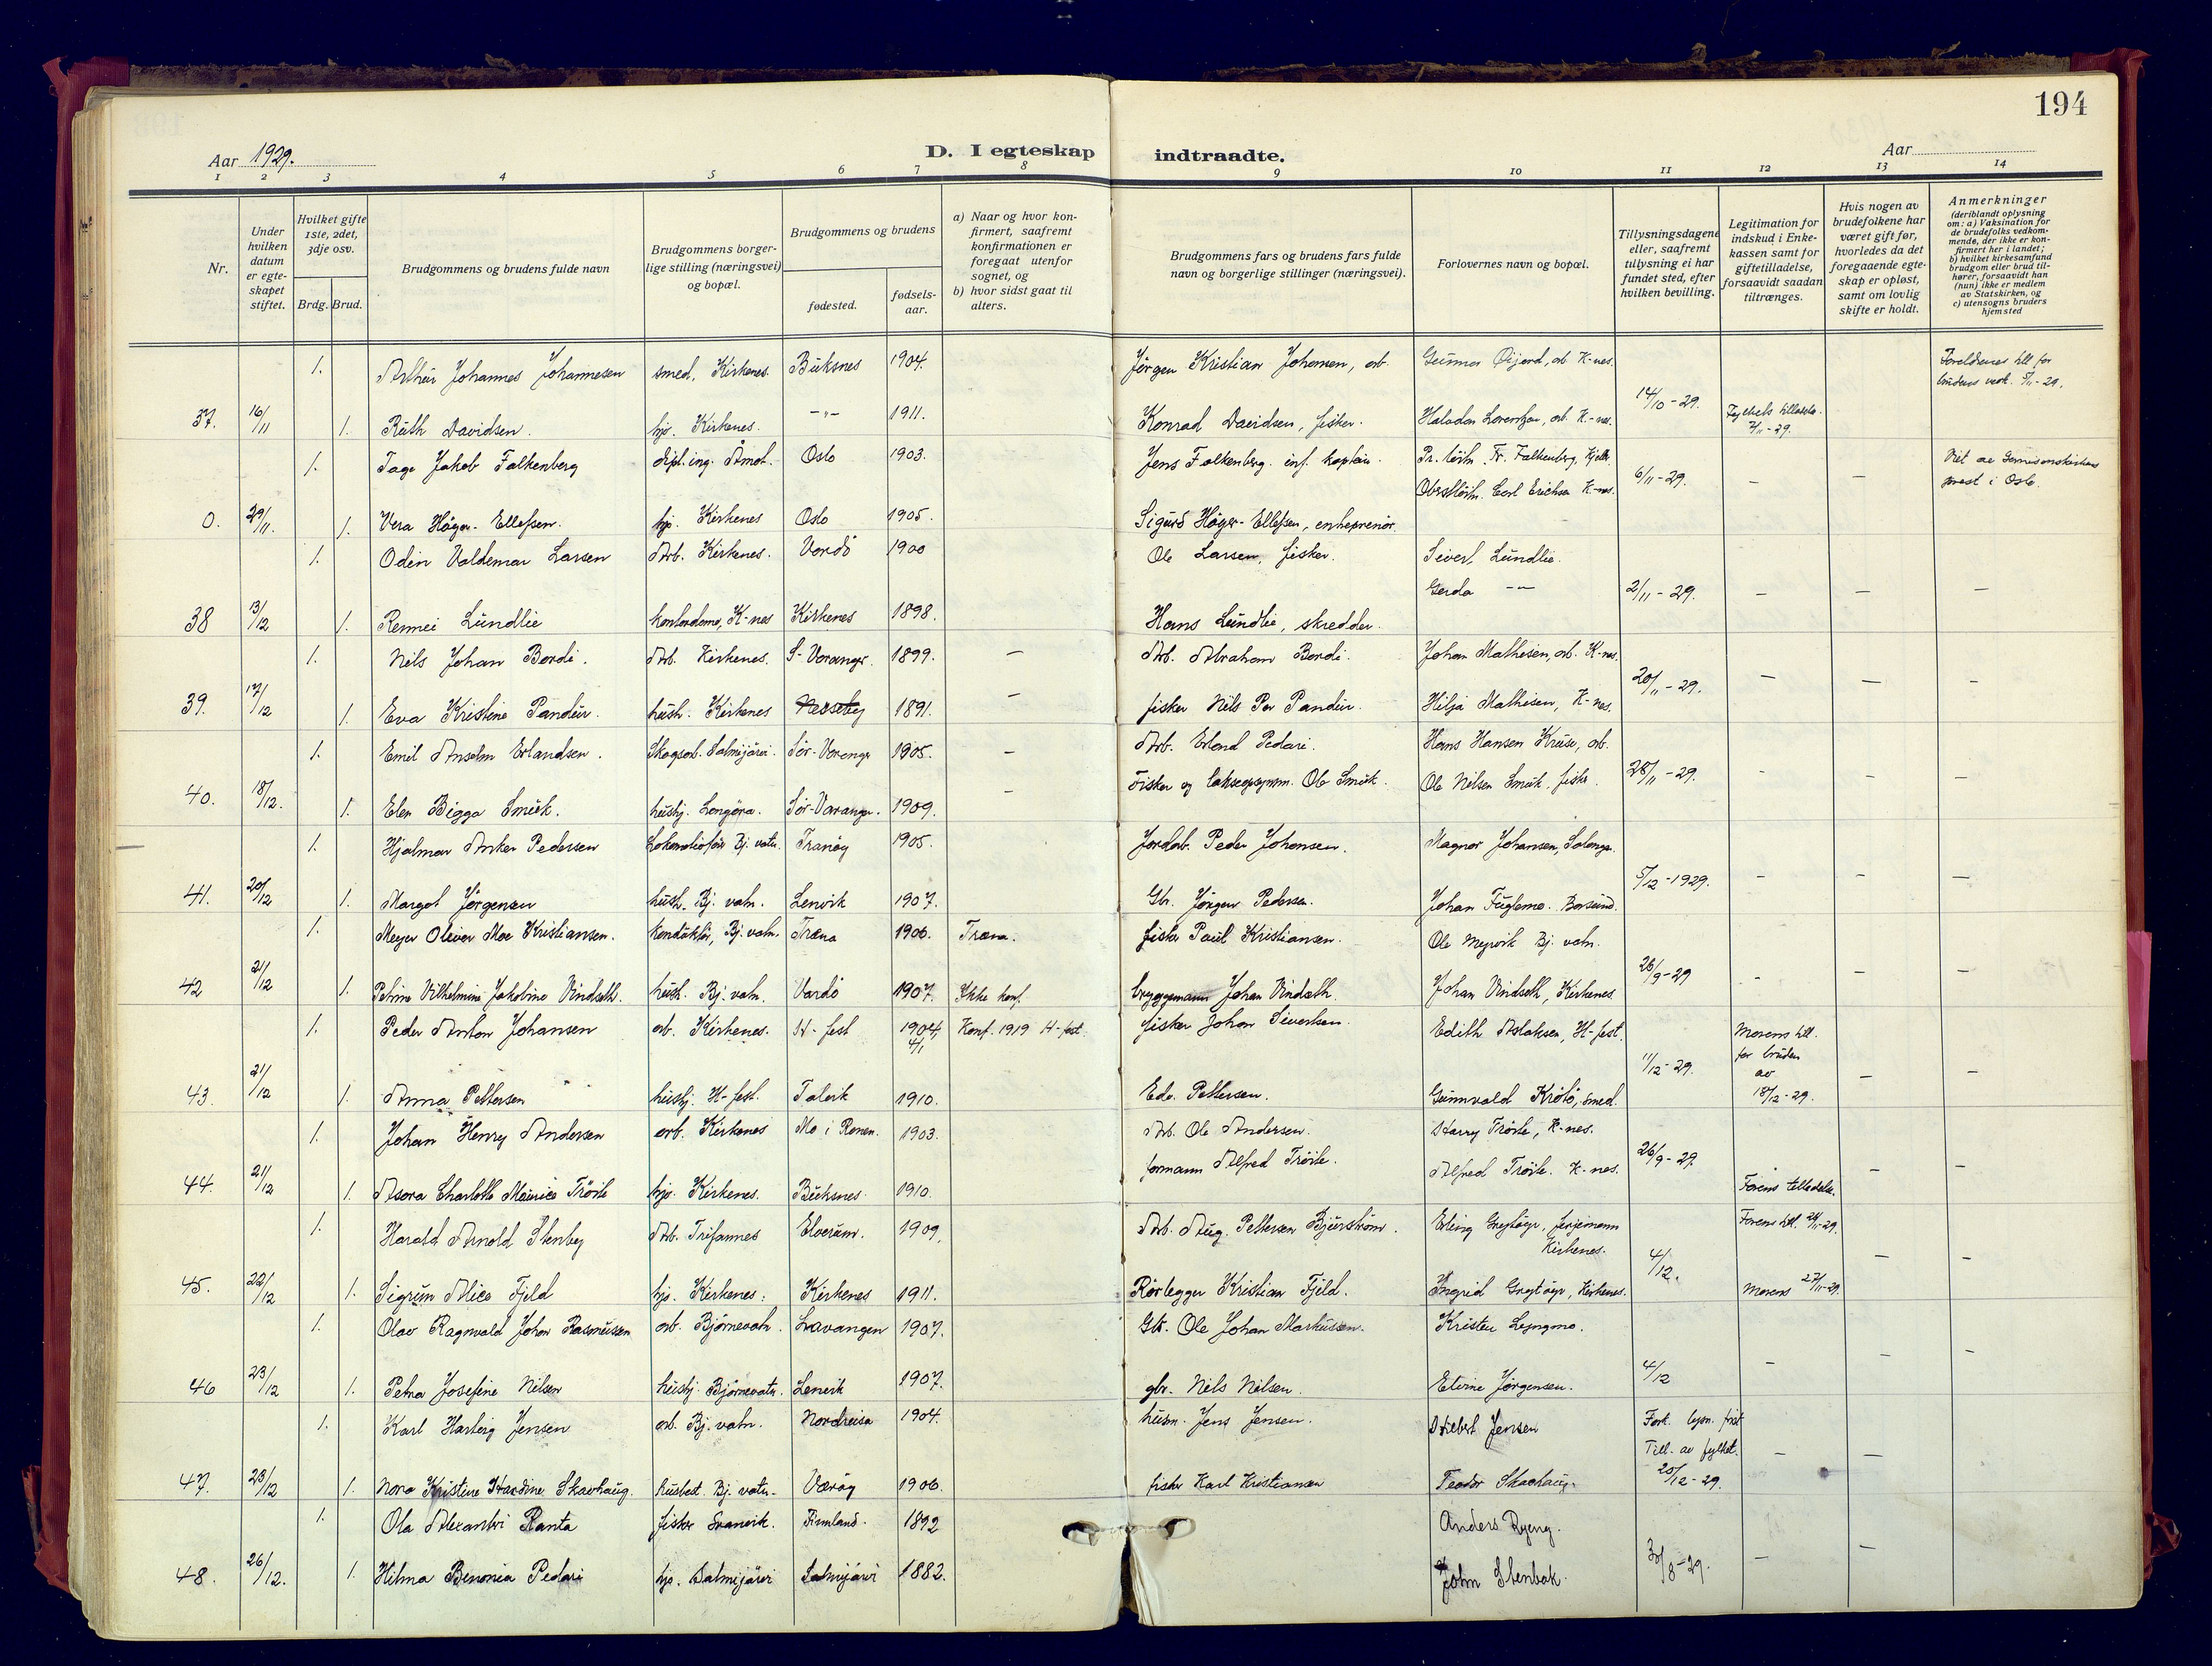 194
Aar 1929.
D. I egteskap indtraadte.
Aar
1 2 3 4 5 6 7 8 9 10 11 12 13 14
Nr.
Under hvilken datum er egteskapet stiftet.
Hvilket gifte 1ste, 2det, 3dje osv.
Brdg. Brud.
Brudgommens og brudens fulde navn
Brudgommens borgerlige stilling (næringsvei) og bopæl.
Brudgommens og brudens
fødested.
fødselsaar.
a) Naar og hvor konfirmert, saafremt konfirmationen er foregaat utenfor sognet, og
b) hvor sidst gaat til alters.
Brudgommens fars og brudens fars fulde navn og borgerlige stillinger (næringsvei).
Forlovernes navn og bopæl.
Tillysningsdagene eller, saafremt tillysning ei har fundet sted, efter hvilken bevilling.
Legitimation for indskud i Enkekassen samt for giftetilladelse, forsaavidt saadan tiltrænges.
Hvis nogen av brudefolkene har været gift før, hvorledes da det foregaaende egteskap er opløst, samt om lovlig skifte er holdt.
Anmerkninger
(deriblandt oplysning om: a) Vaksination for de brudefolks vedkommende, der ikke er konfirmert her i landet; b) hvilket kirkesamfund brudgom eller brud tilhører, forsaavidt han (hun) ikke er medlem av Statskirken, og c) utensogns bruders hjemsted
1. Arthur Johannes Johannesen smed, Kirkenes. Buksnes 1904. Jörgen Kristian Johansen, arb. Gunnar Öijord, arb K-nes.
14/10-29.
37. 16/11 1. Ruth Davidsen. hjs. Kirkenes. -"- 1911. Konrad Davidsen, fisker. arb. K-nes.
1. Tage Jakob Falkenberg dipl.ing. Åmot. Oslo 1903. Jens Falkenberg. inf. kaptein. Fr. Falkenberg,
Carl Erichsen K-nes. 6/11-29. — — prest i Oslo.
0. 29/11. 1. Vera Höyer-Ellefsen. hjs. Kirkenes Oslo 1905. Sigurd Höyer-Ellefsen, entreprenör.
1. Odin Valdemar Larsen Arb. Kirkenes. Vardö 1900 Ole Larsen, fisker. Sivert Lundlie.
Gerda -"- 2/11-29. — — —
38 13/12 1. Renmei Lundlie kontordame, K-nes Kirkenes 1898. Hans Lundlie, skredder.
1. Nils Johan Bordi. Arb. Kirkenes. S-Varanger. 1899. — Arb. Abraham Bordi. Johan Mathisen, arb. K-nes.
20/11-29. — — —
39. 17/12 1. Eva Kristine Pandur. hush. Kirkenes Nesseby 1891. — fisker Nils Per Pandur. Hilja Mathisen, K-nes.
1. Emil Anselm Erlandsen. Skogsarb. Salmijärvi. Sör-Varanger 1905. — Arb. Erland Pedari. Hans Hansen Kruse, arb.
28/11-29. — — —
40. 18/12. 1. Elen Bigga Smuk. hushj. Langöra. Sör-Varanger. 1909. — Fisker og Ole Smuk. Ole Nilsen Smuk, fisker.
1. Hjalmar Anker Pedersen Bj. vatn. Tranöy 1905. Jordarb. Peder Johansen. Magnor Johansen,
5/12-1929. — — —
41. 20/12 1. Margot Jörgensen hush. Bj. vatn. Lenvik 1907. Gbr. Jörgen Pedersen. Johan Fuglemo.
1. Meyer Oliver Moe Kristiansen. konduktör, Bj. vatn. Træna 1906. Træna. fisker Paul Kristiansen. Ole Bj. vatn.
26/9-29 — — —
42 21/12 1. Petrine Vilhelmine Jakobine Vindseth. hush. Bj. vatn. Vardö 1907. Ikke konf. bryggemann Johan Vindseth. Johan Vindseth, Kirkenes
1. Peder Anton Johansen arb. Kirkenes. H-fest 1904 4/1 Konf. 1919 H-fest. fisker Johan Sivertsen. Edith Aslaksen, H-fest.
11/12-29. Morens till. for bruden av 18/12-29. — —
43. 21/12 1. Anna Pettersen hushj. H-fest. Talvik 1910. Edv. Pettersen. Gunnvald Krötö, smed.
1. Johan Henry Andersen arb. Kirkenes Mo i Ranen. 1903. Arb. Ole Andersen. Harry Tröite, K-nes.
26/9-29. — —
44. 21/12 1. Asora Charlotte Mauries Tröite hjs. Kirkenes. Buksnes 1910. formann Alfred Tröite. Alfred Tröite. K-nes. Farens tilladelse.
1. Harald Arnold Stenby Arb. Trifannes Elverum. 1909. Arb. Aug. Pettersen Bjurström. Erling Grytöyr, ferjemann Kirkenes. Farens till.
4/12. — —
45. 22/12 1. Sigrun Alice Fjeld hjs. Kirkenes. Kirkenes 1911. Rörlegger Kristian Fjeld. Ingrid Grytöyr, Kirkenes. Morens 27/11-29.
1. Olav Ragnvald Johan Rasmussen arb. Björnevatn. Lavangen 1907. Gbr. Ole Johan Markussen. Kristen Lyngmo.
4/12 — — —
46 23/12 1. Petra Josefine Nilsen hushj. Björnevatn. Lenvik 1907. gbr. Nils Nilsen. Elvine Jörgensen.
1. Karl Hartvig Jensen arb. Bj. vatn. Nordreisa 1904. husm. Jens Jensen. Albert Jensen Fork. lysn. frist
Till. av fylket. — —
47. 23/12 1. Nora Kristine Hardine Skavhaug. husbest. Bj. vatn. Væröy 1906. fisker Karl Kristiansen Teodor Skavhaug. 20/12-29.
1. Ola Alexanteri Ranta fisker Svanvik. Finnland. 1892 Anders Ryeng.
48. 26/12. 1. Hilma Benonia Pedari hjs. Salmijärvi Salmijärvi 1882. John Stenbak. 30/8-29. — —